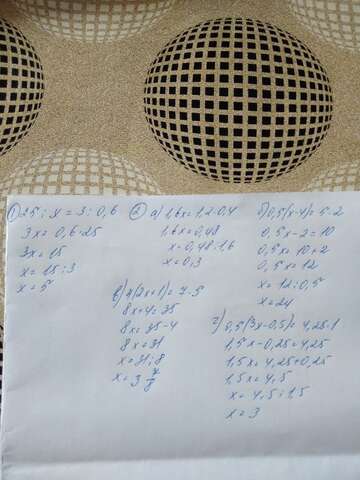 ① 25 : x = 3 : 0,6
3x = 0,6·25
3x = 15
x = 15 : 3
x = 5
② а) 1,6x = 1,2·0,4
1,6x = 0,48
x = 0,48:1,6
x = 0,3
б) 0,5(x-4) = 5·2
0,5x-2 = 10
0,5x = 10+2
0,5x = 12
x = 12:0,5
x = 24
в) 4(2x+1) = 7·5
8x+4 = 35
8x = 35-4
8x = 31
x = 31:8
x = 3 7/8
г) 0,5(3x-0,5) = 4,25·1
1,5x-0,25 = 4,25
1,5x = 4,25+0,25
1,5x = 4,5
x = 4,5:1,5
x = 3